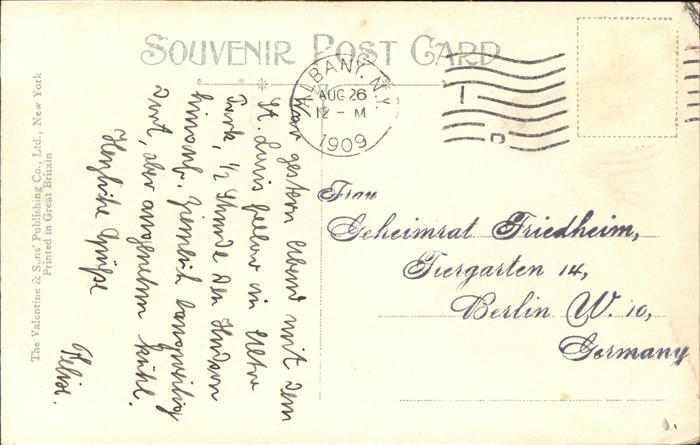 SOUVENIR POST CARD
ALBANY, N.Y.
AUG 26
12 - M
1909
1
D
The Valentine & Sons' Publishing Co., Ltd., New York
Printed in Great Britain
War gestern Abend mit dem
St. Louis Fellow in Ulter
Park, 1/2 Stunde den Hudson
hinauf. Ziemlich langweilig
dort, aber angenehm kühl.
Herzliche Grüße
Felix.
Frau
Geheimrat Friedheim,
Tiergarten 14,
Berlin W. 10,
Germany
1.